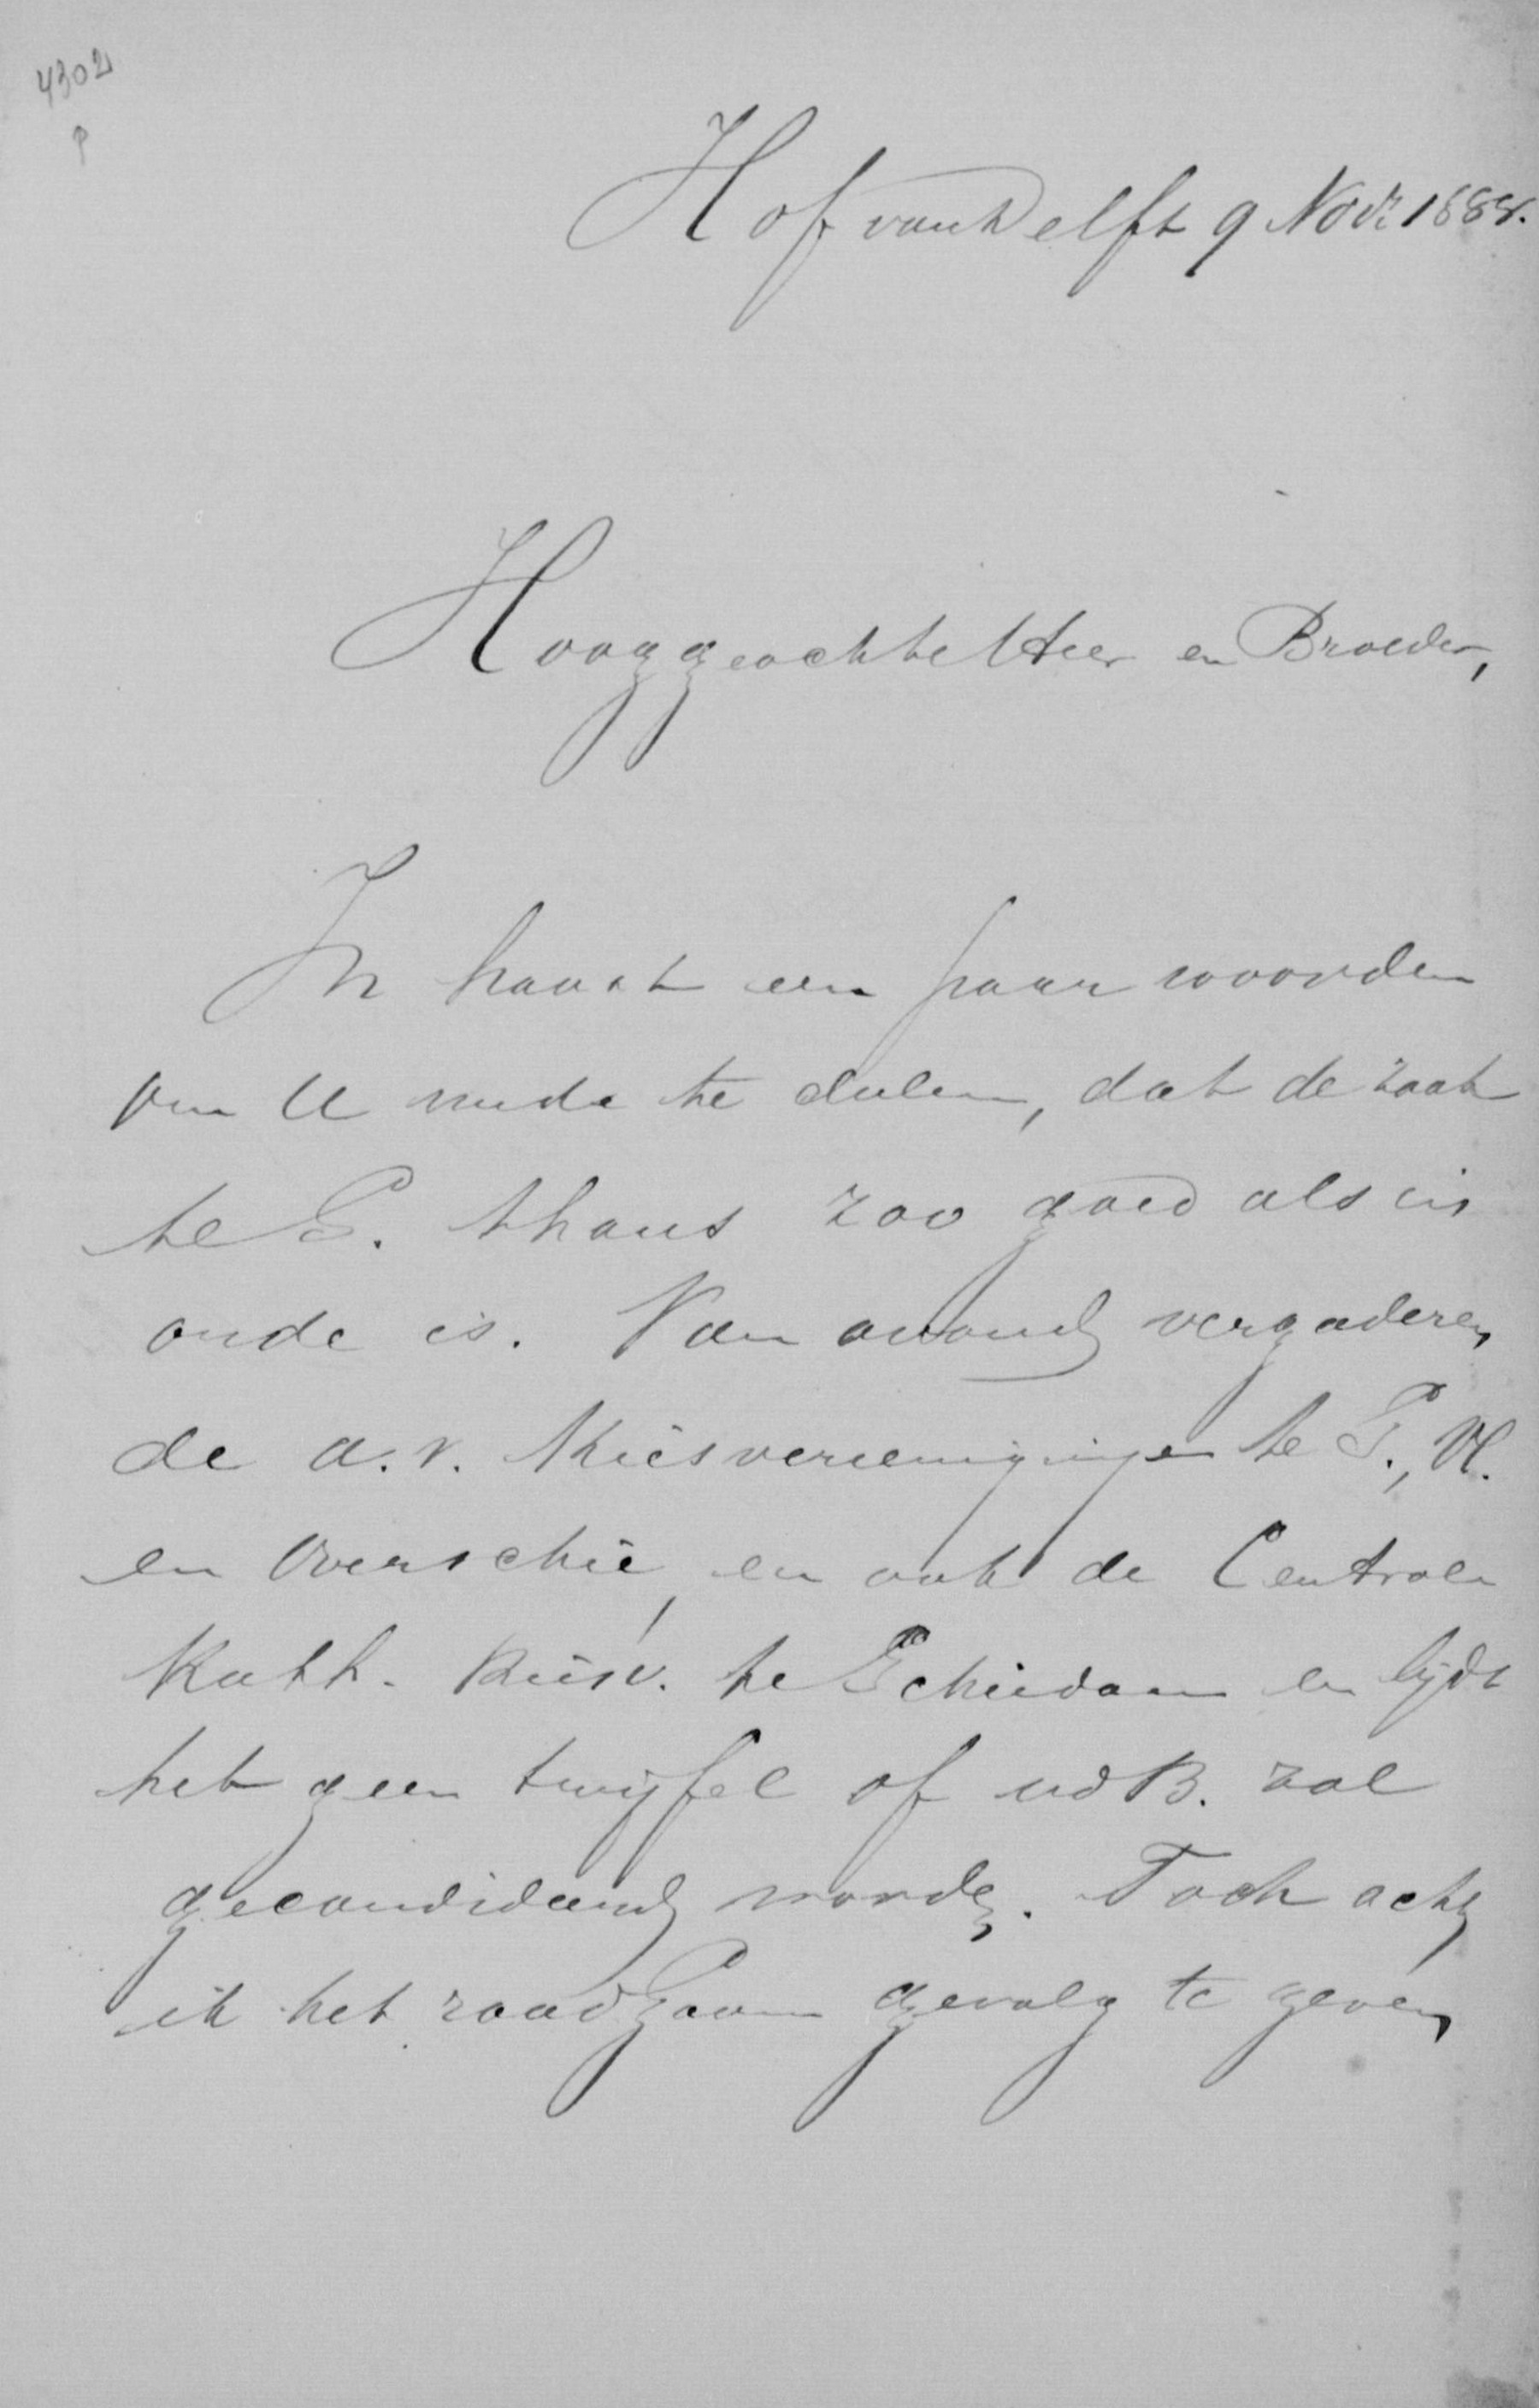 4302
P
Hof van Delft 9 Novr 1888.
Hooggeachte Heer en Broeder,
In haast een paar woorden
om U mede te deelen, dat de zaak
te S. thans zoo goed als in
orde is. Van avond vergaderen
de a.r. Kiesvereenigingen te S., Vl.
en Overschie, en ook de Centrale
Kath. Kiesv. te Schiedam en lijdt
het geen twijfel of vdB. zal
gecandideerd worden. Toch acht
ik het raadzaam gevolg te geven